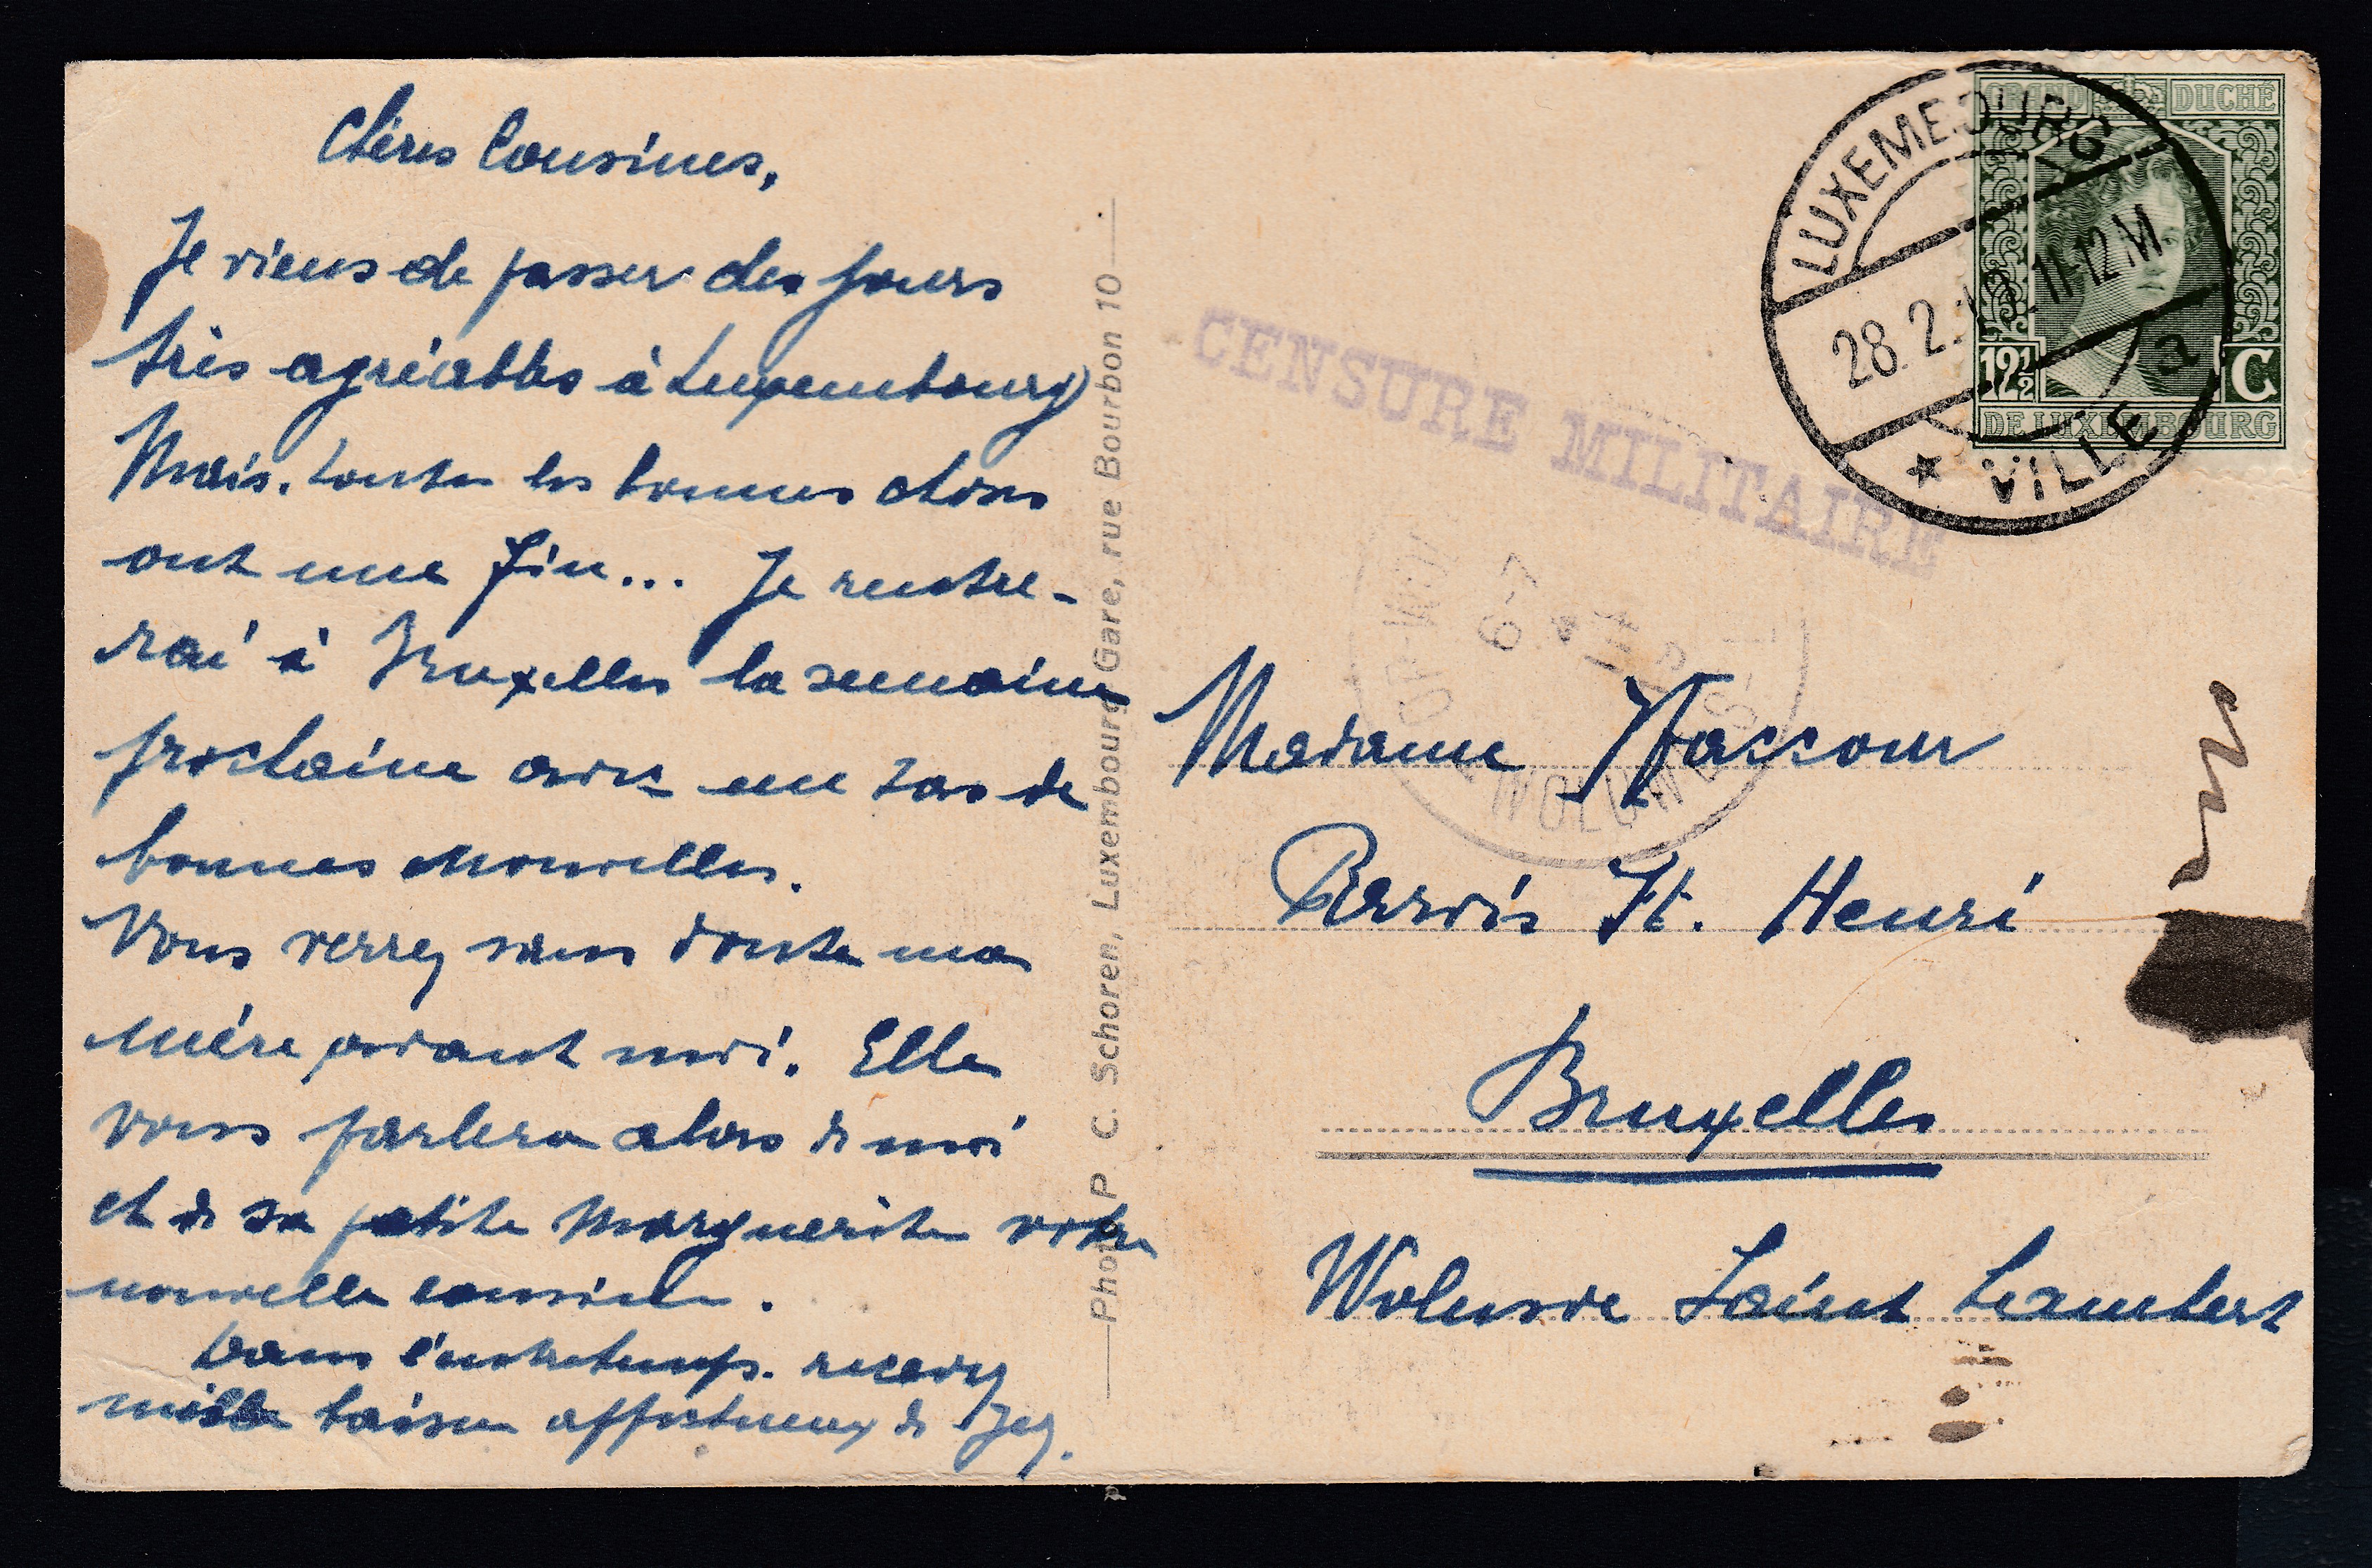 Chères Cousines,
Je viens de passer des jours
très agréables à Luxembourg
Mais, toutes les bonnes choses
ont une fin... Je rentre-
rai à Bruxelles la semaine
prochaine avec un tas de
bonnes nouvelles.
Vous verrez sans doute ma
mère avant moi. Elle
vous parlera alors de moi
et de sa petite Marguerite votre
nouvelle cousine.
Dans l'entretemps. recevez
mille baisers affectueux de
Photo P. C. Schoren, Luxembourg-Gare, rue Bourbon 10
GRAND DUCHÉ
DE LUXEMBOURG
12½ C
LUXEMBOURG
28.2. 11-12 M
a
* VILLE
CENSURE MILITAIRE
6-7
WOLUWE-S
Madame
Parvis St. Henri
Bruxelles
Woluwe Saint Lambert